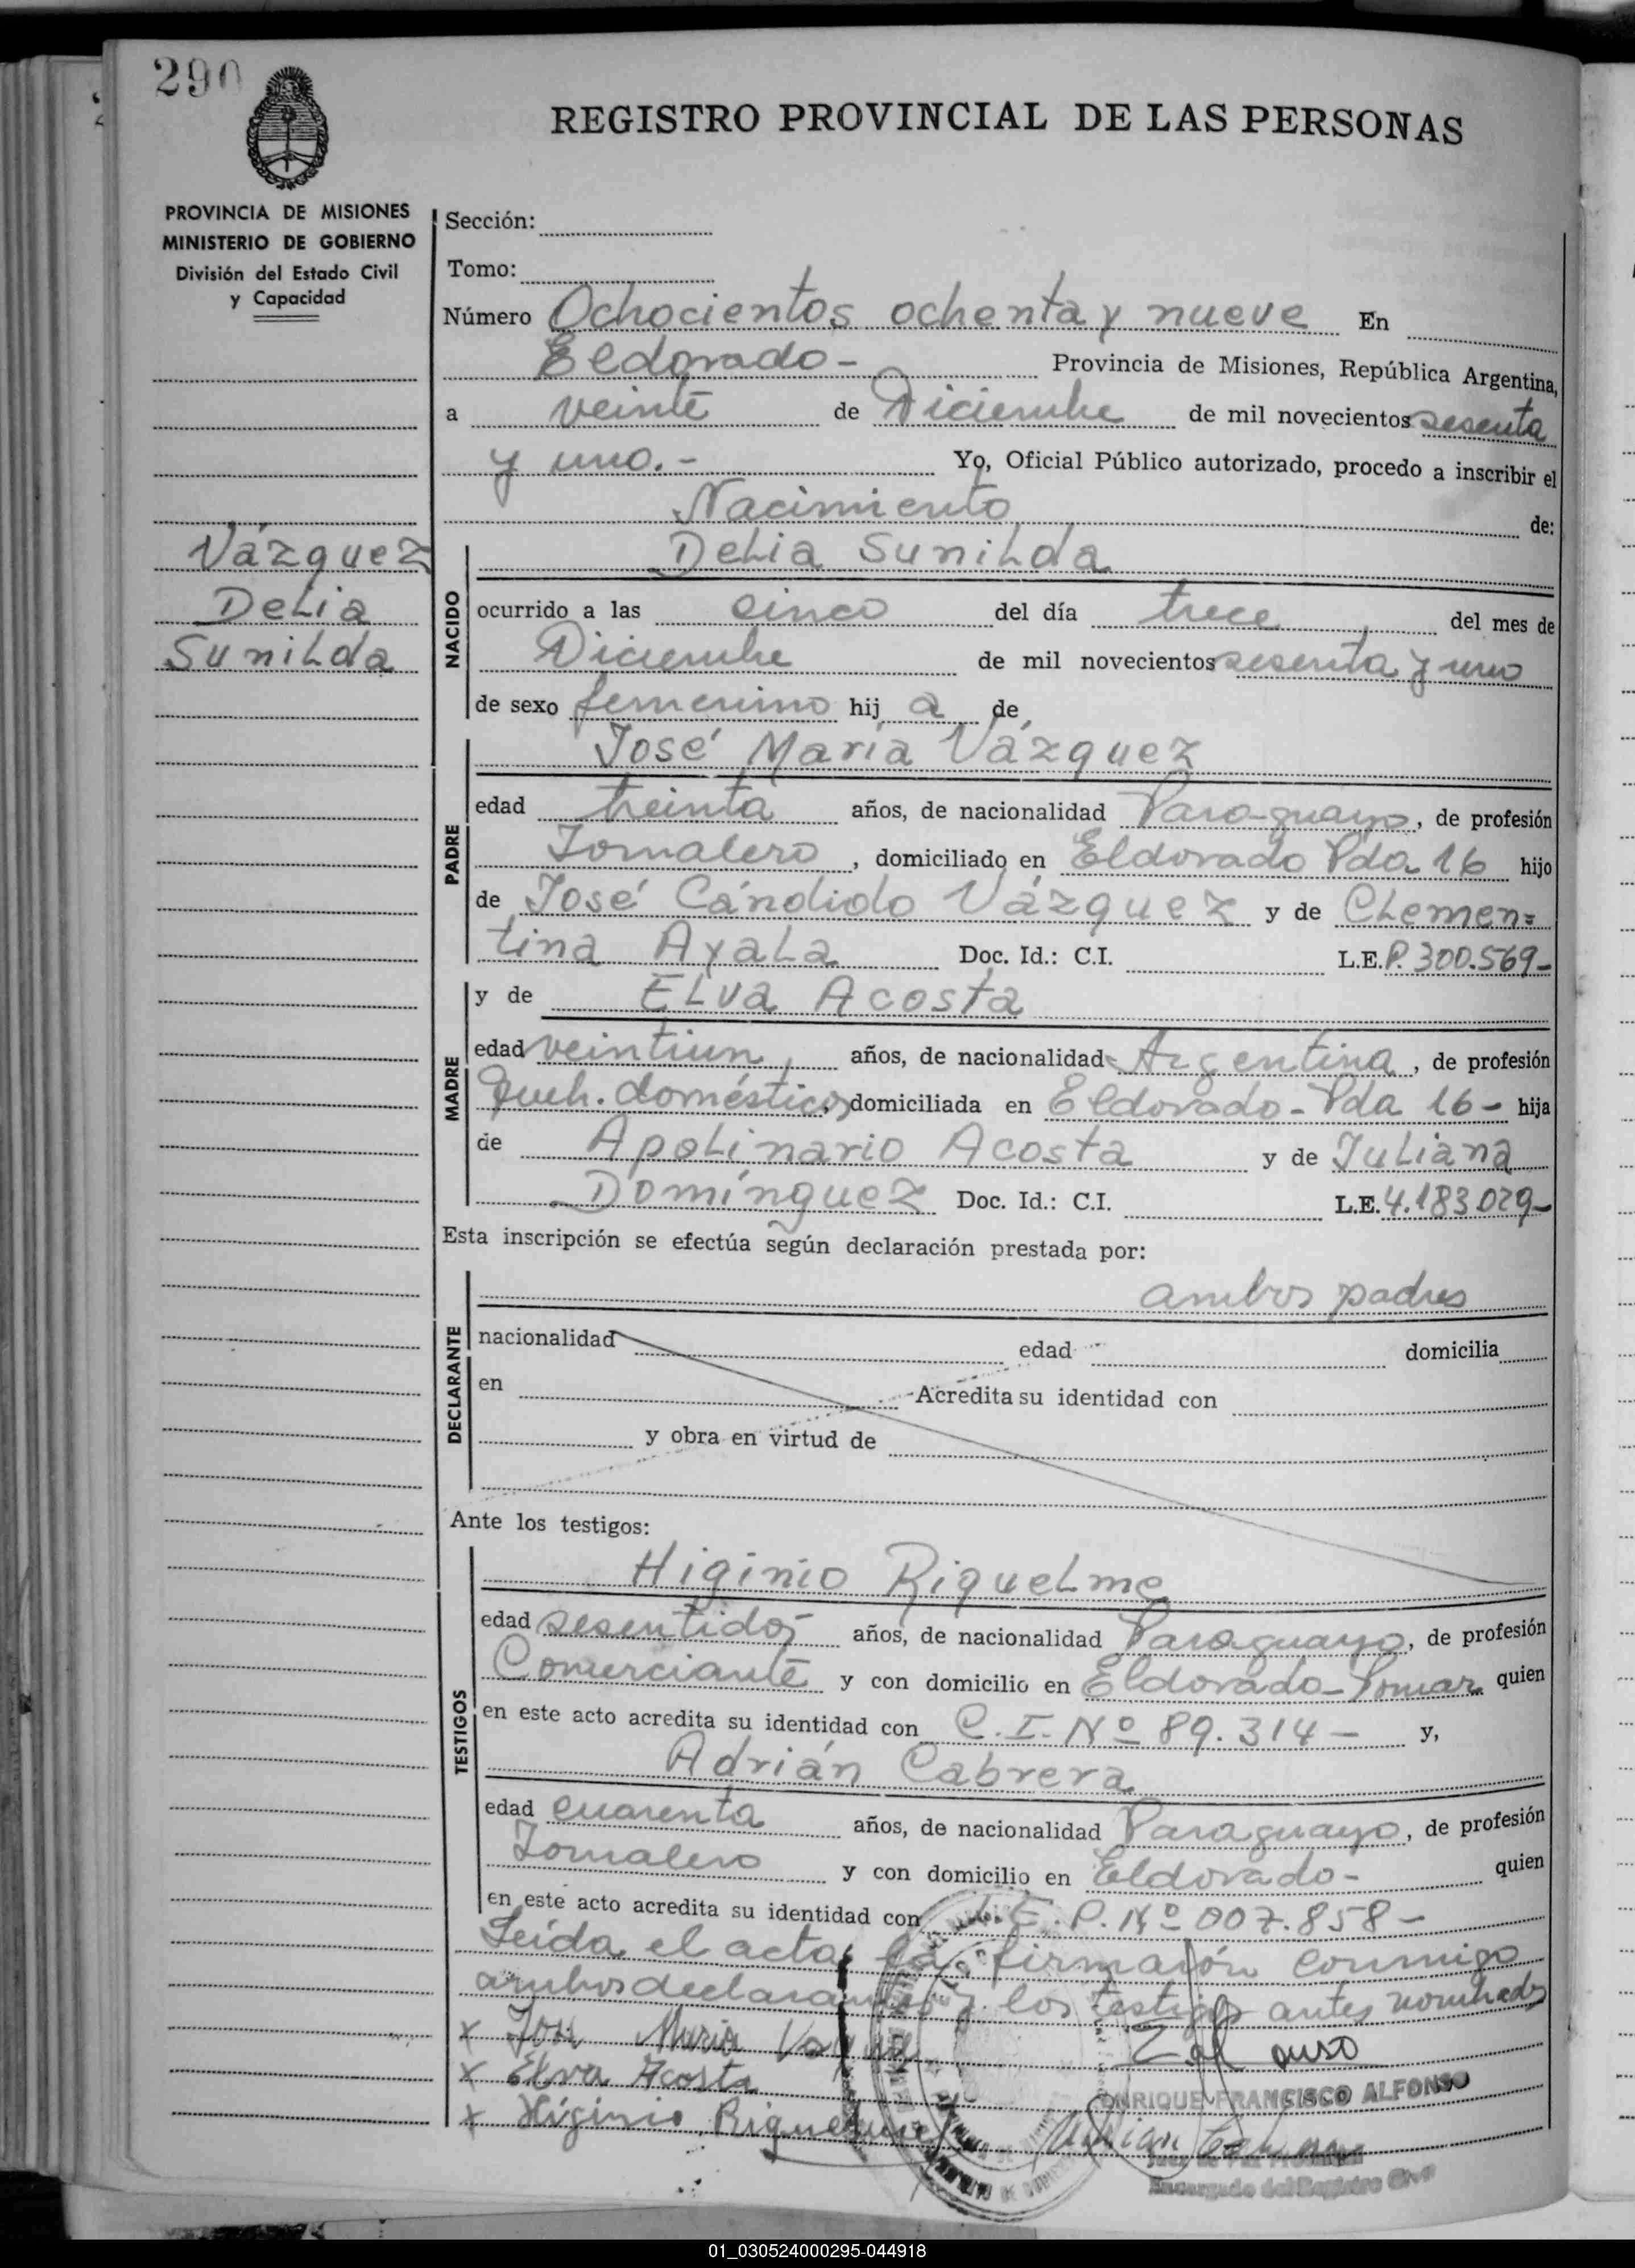 290
REGISTRO PROVINCIAL DE LAS PERSONAS
PROVINCIA DE MISIONES
MINISTERIO DE GOBIERNO
División del Estado Civil
y Capacidad
Vázquez
Delia
Sunilda
Sección:
Tomo:
Número Ochocientos ochenta y nueve En
Eldorado- Provincia de Misiones, República Argentina,
a veinte de Diciembre de mil novecientos sesenta
y uno.- Yo, Oficial Público autorizado, procedo a inscribir el
Nacimiento de:
NACIDO
Delia Sunilda
ocurrido a las cinco del día trece del mes de
Diciembre de mil novecientos sesenta y uno
de sexo femenino hij a de
PADRE
José María Vázquez
edad treinta años, de nacionalidad Paraguayo, de profesión
Jornalero, domiciliado en Eldorado Pda 16 hijo
de José Cándido Vázquez y de Clemen=
tina Ayala Doc. Id.: C.I. L.E. P. 300.569-
MADRE
y de Elva Acosta
edad veintiun años, de nacionalidad Argentina, de profesión
Queh. domésticos, domiciliada en Eldorado- Pda 16- hija
de Apolinario Acosta y de Juliana
Domínguez Doc. Id.: C.I. L.E. 4.183.029-
Esta inscripción se efectúa según declaración prestada por:
DECLARANTE
ambos padres
nacionalidad edad domicilia
en Acredita su identidad con
y obra en virtud de
Ante los testigos:
TESTIGOS
Higinio Riquelme
edad sesentidos años, de nacionalidad Paraguayo, de profesión
Comerciante y con domicilio en Eldorado- Pomar quien
en este acto acredita su identidad con C.I. Nº 89.314- y,
Adrián Cabrera
edad cuarenta años, de nacionalidad Paraguayo, de profesión
Jornalero y con domicilio en Eldorado- quien
en este acto acredita su identidad con C.P. Nº 007.858-
Leída el acta, la firmarón conmigo
ambos declarantes y los testigos antes nombrados
x Jose Maria
x Elva Acosta
x Higinio Riquelme
ENRIQUE FRANCISCO ALFONSO
Encargado del Registro Civil
01_030524000295-044918